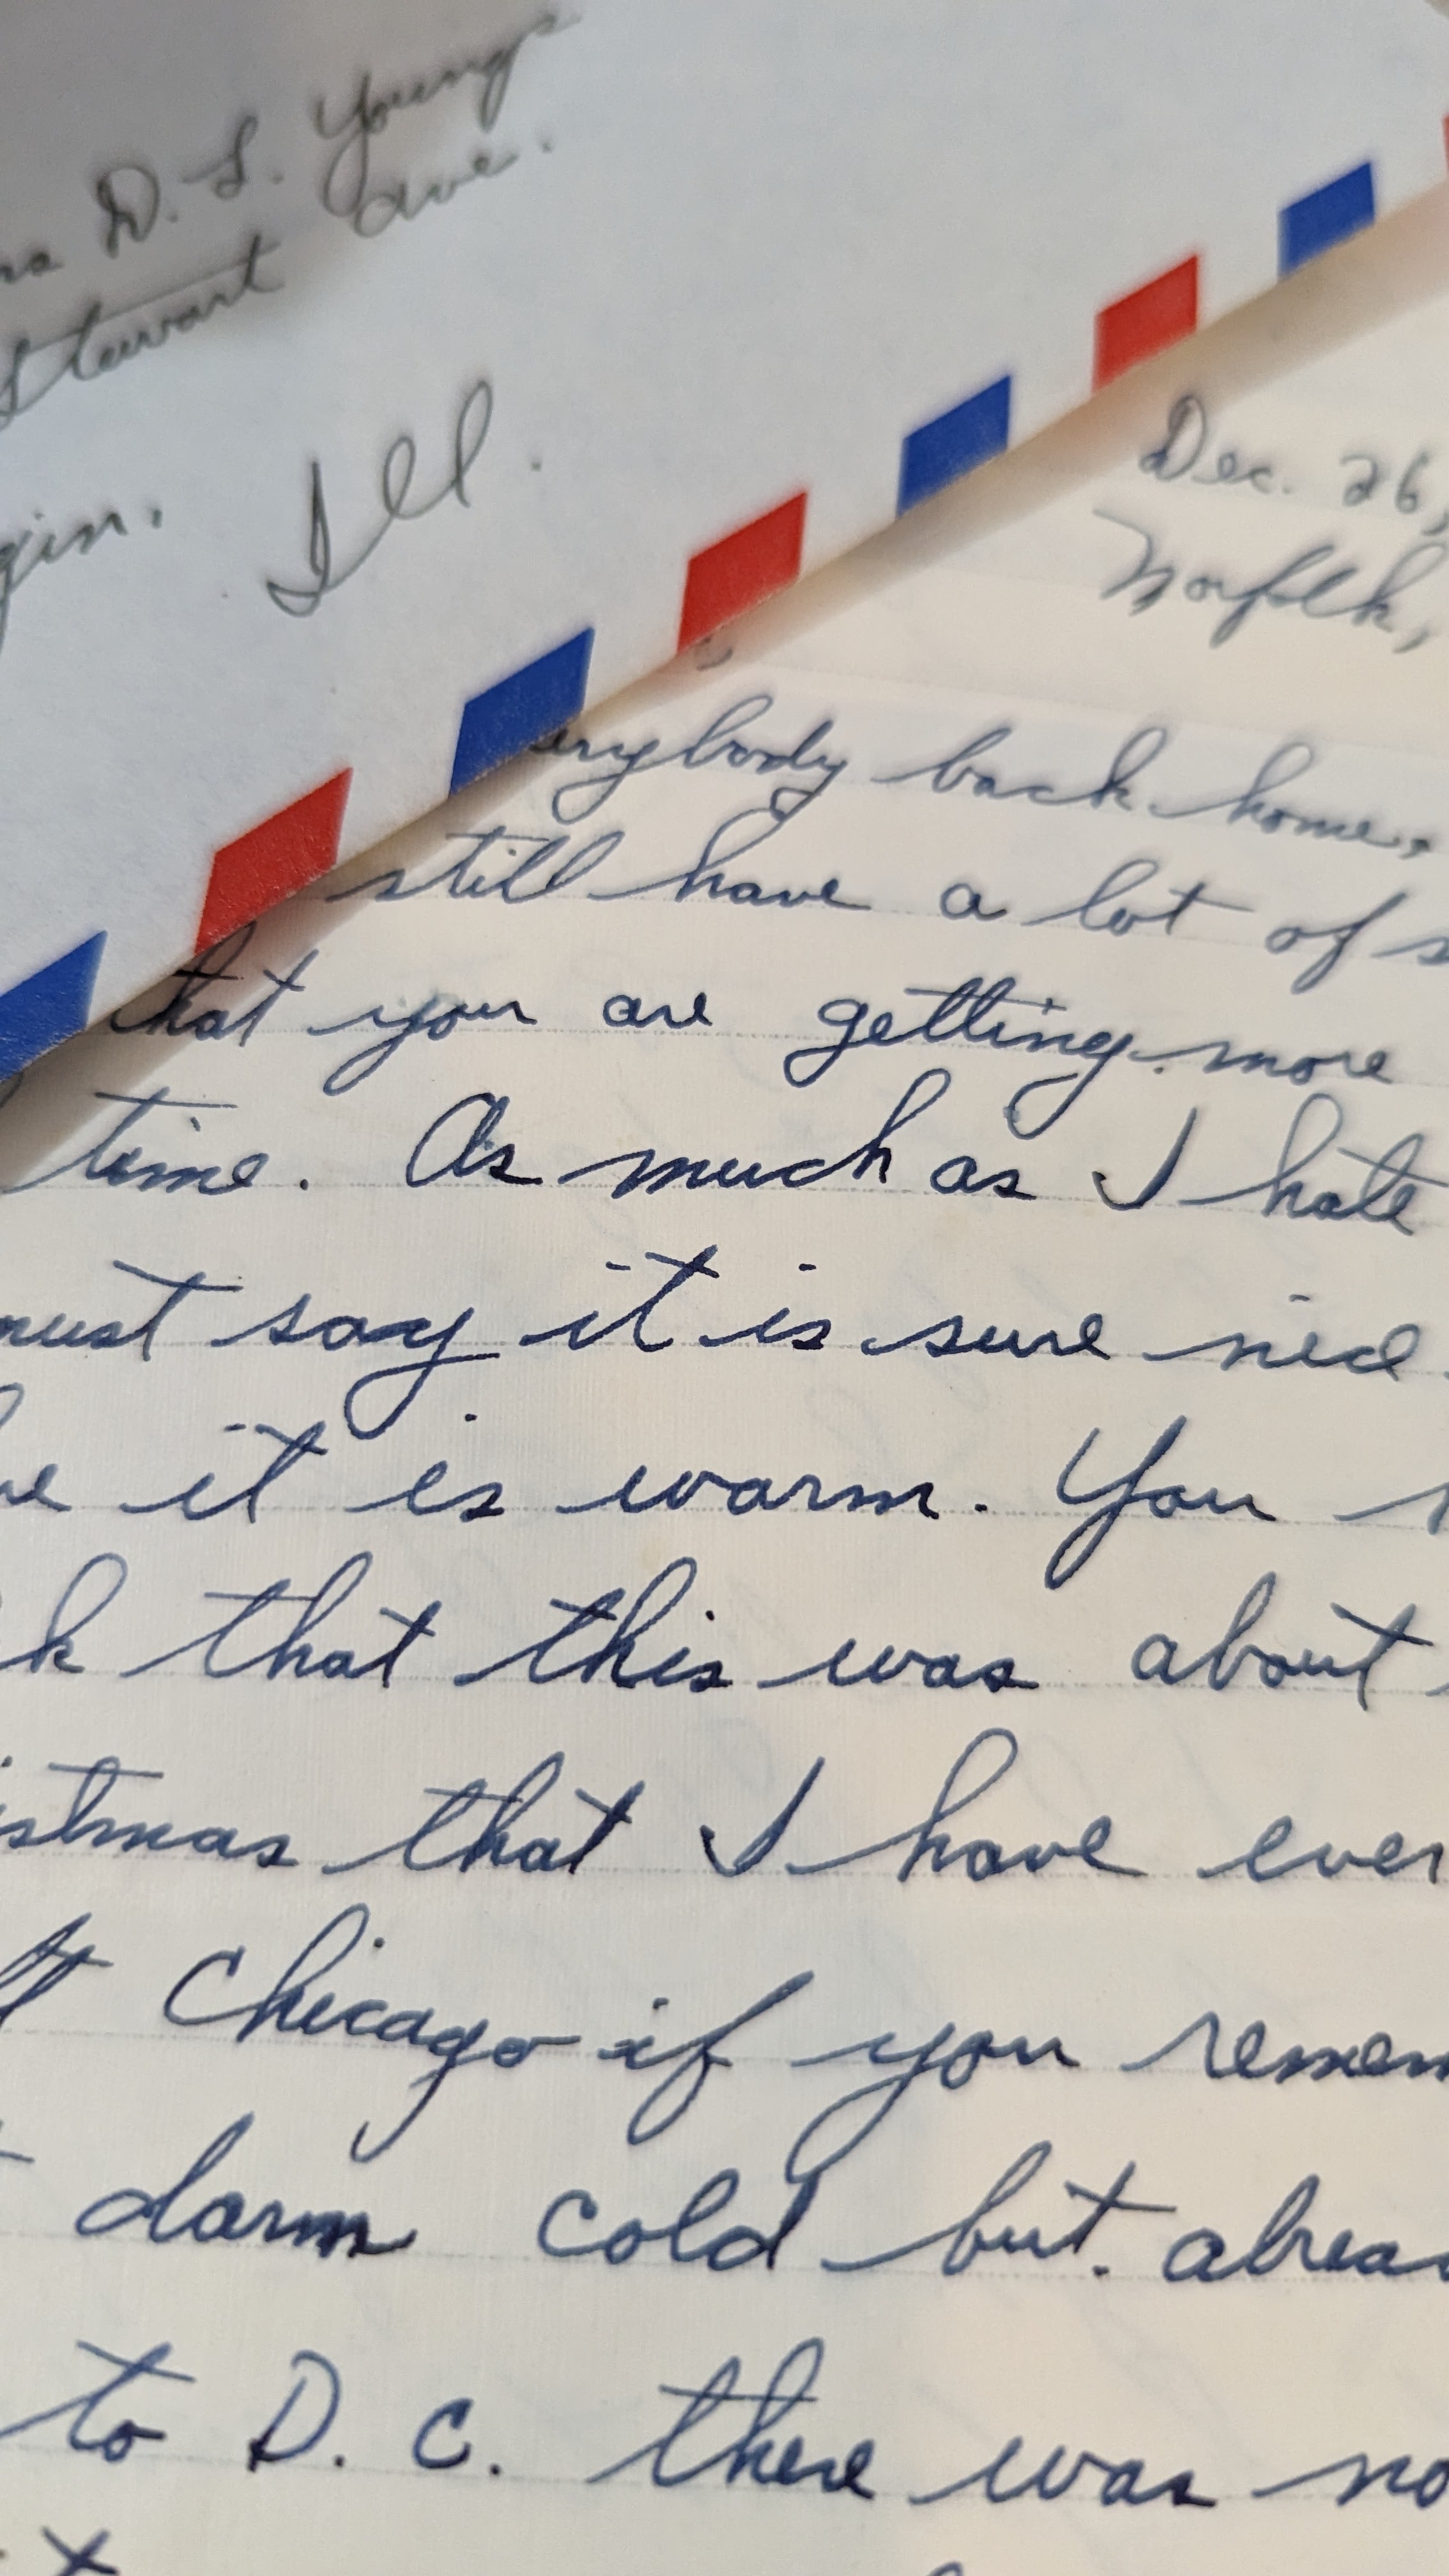 D. L. Young
Stewart Ave.
gin, Ill.
Dec. 26,
Norfolk,
erybody back home,
still have a lot of s
that you are getting more
time. As much as I hate
must say it is sure nice
it is warm. You
k that this was about
istmas that I have ever
Chicago if you remem
darm cold but alrea
to D. C. there was no